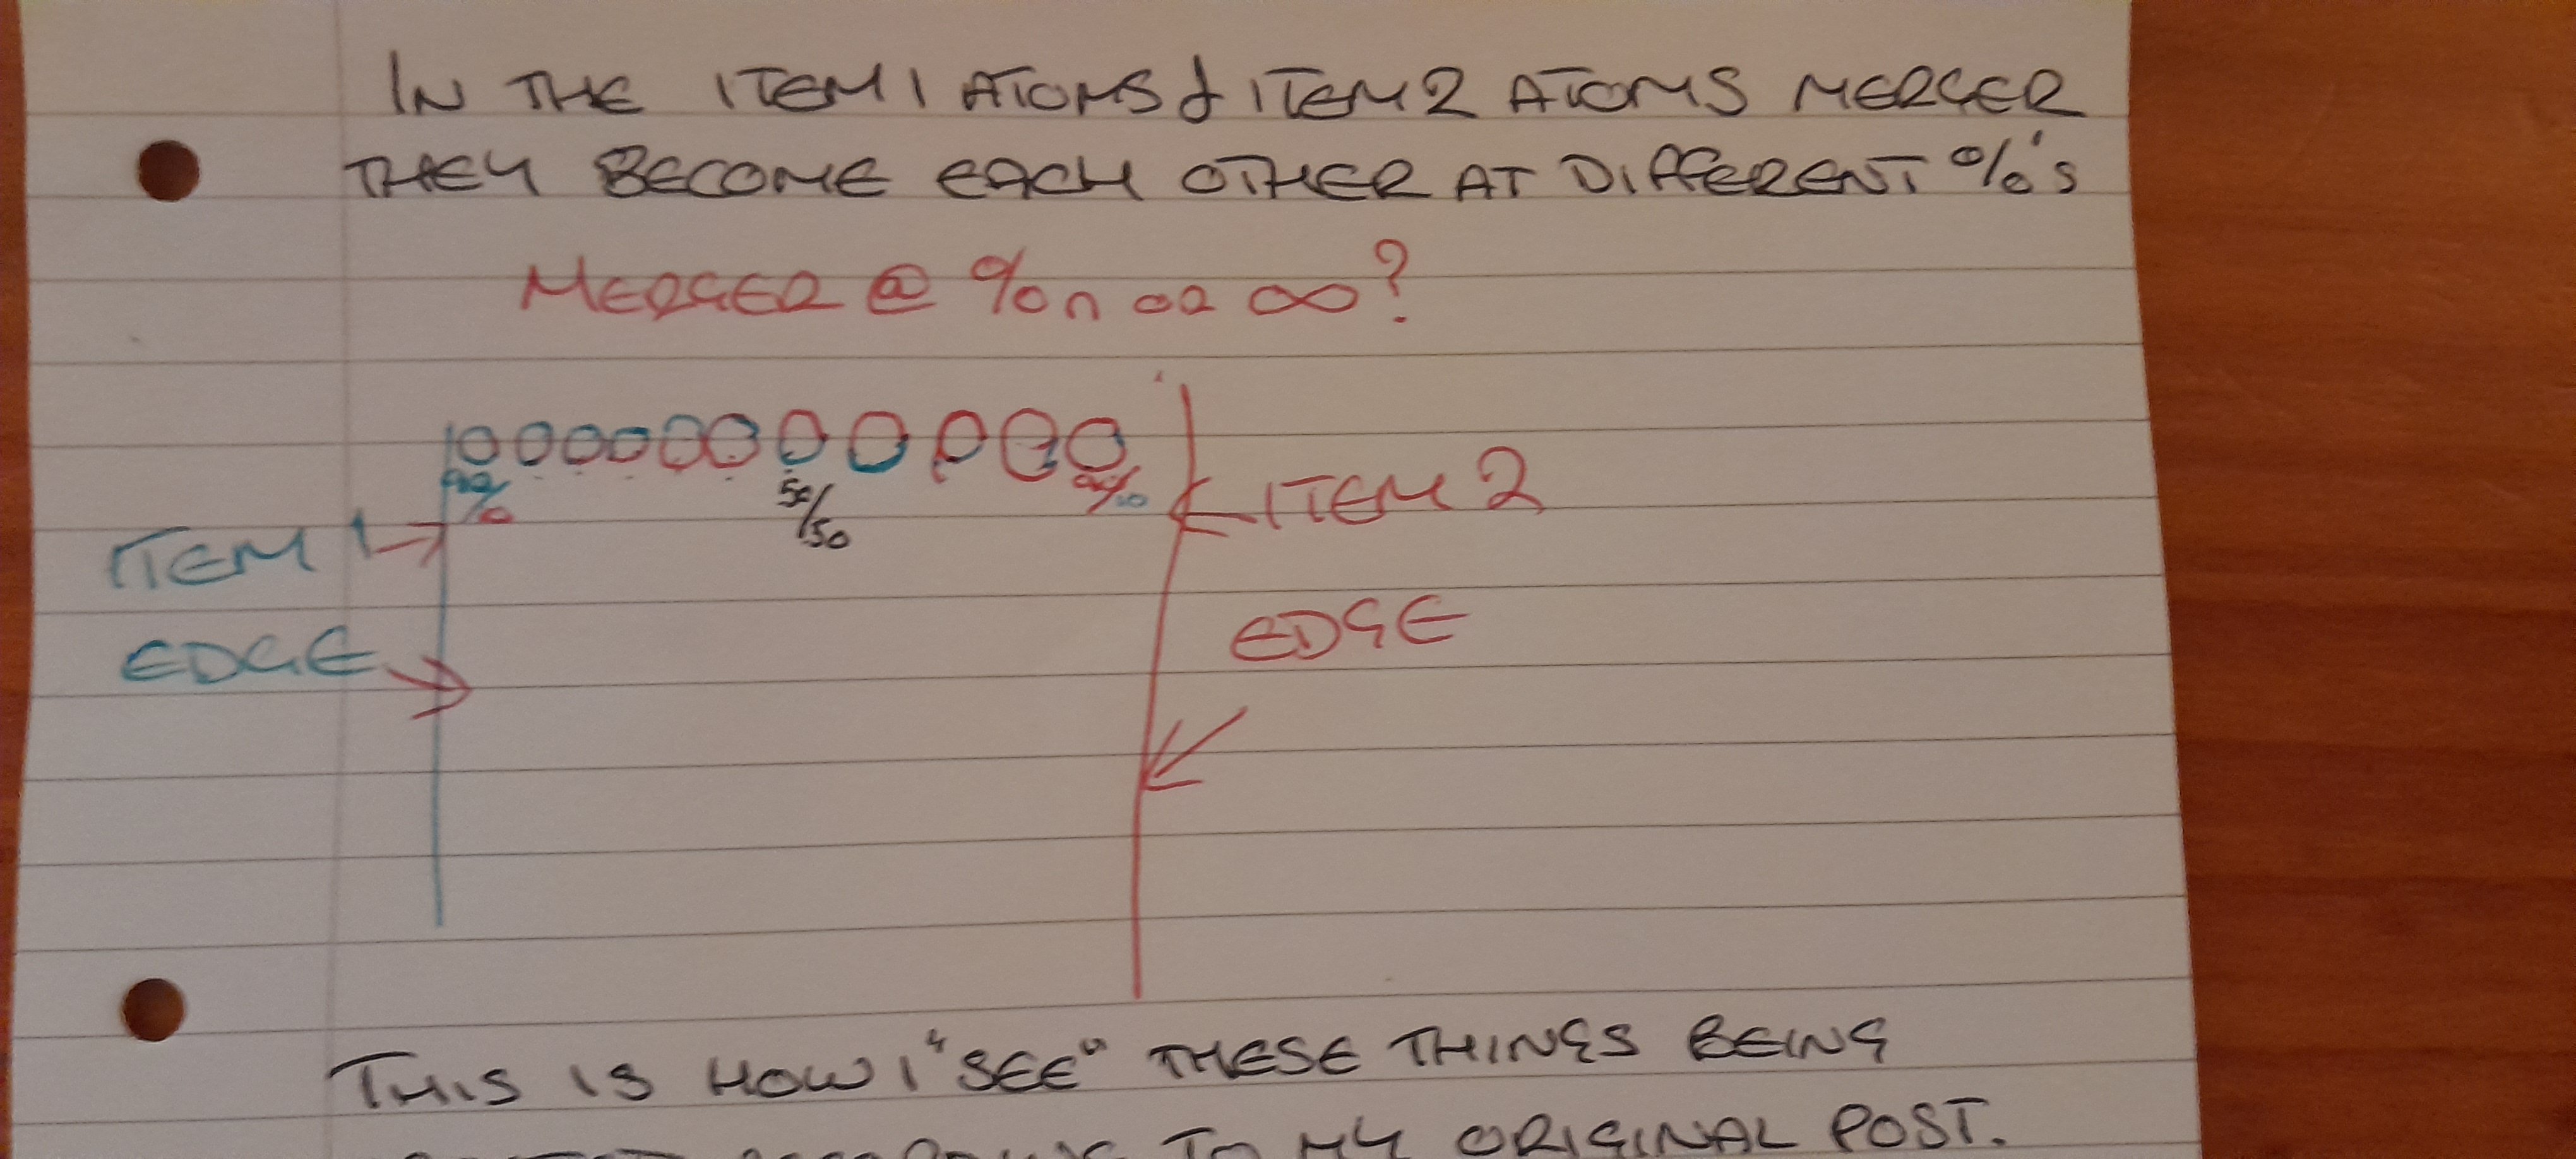 IN THE ITEM 1 ATOMS & ITEM 2 ATOMS MERGER
THEY BECOME EACH OTHER AT DIFFERENT %'s
MERGER @ % n OR ∞?
99%
50/50
99%
ITEM 1
ITEM 2
EDGE
EDGE
THIS IS HOW I "SEE" THESE THINGS BEING
TO MY ORIGINAL POST.